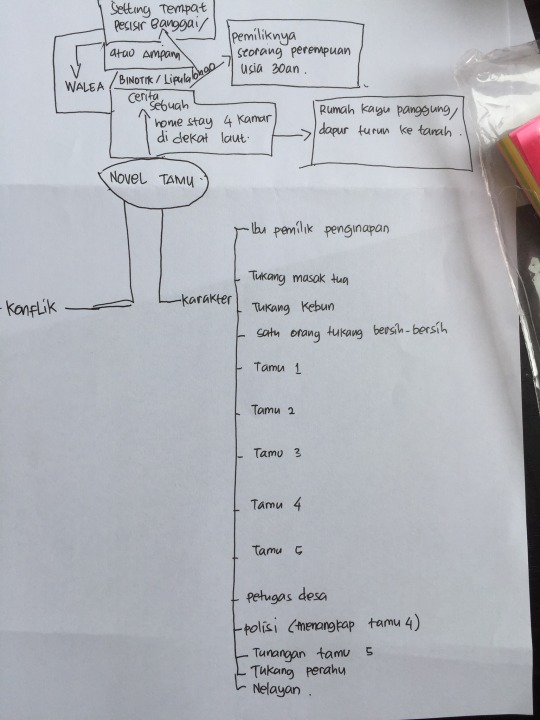 Setting Tempat
Pesisir Banggai/
atau Ampana
WALEA
/BINOTIK/Lipulalongo
pemiliknya
seorang perempuan
usia 30an.
Cerita
sebuah
home stay 4 kamar
di dekat laut.
Rumah kayu panggung/
dapur turun ke tanah.
NOVEL TAMU
Konflik
karakter
Ibu pemilik penginapan
Tukang masak tua
Tukang Kebun
satu orang tukang bersih-bersih
Tamu 1
Tamu 2
Tamu 3
Tamu 4
Tamu 5
petugas desa
polisi (menangkap tamu 4)
Tunangan tamu 5
Tukang perahu
Nelayan.